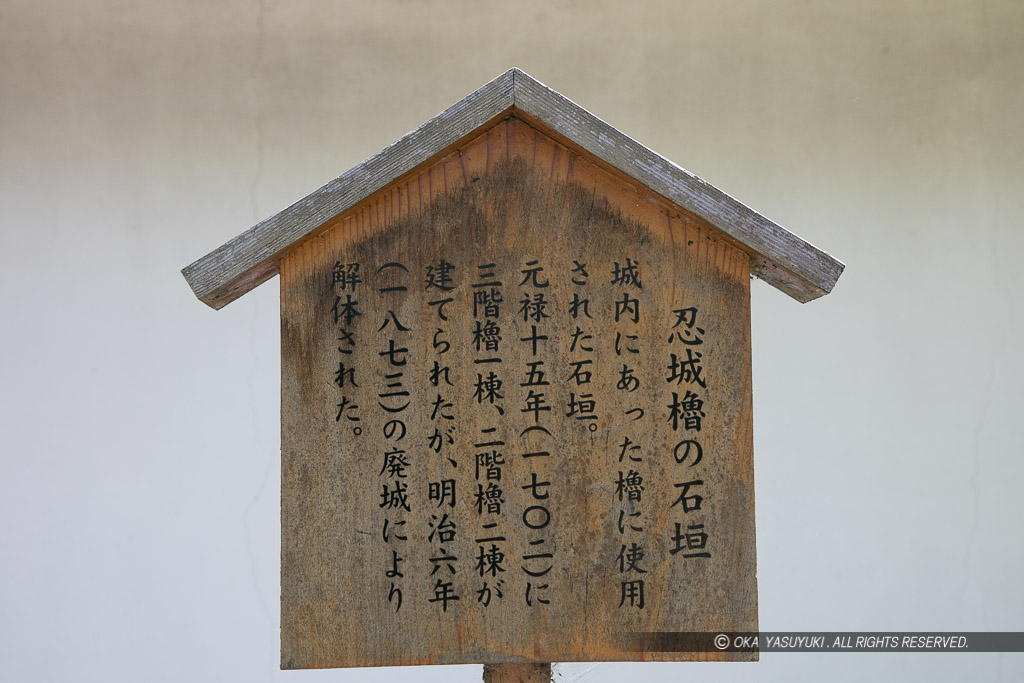 忍城櫓の石垣
城内にあった櫓に使用
された石垣。
元禄十五年(一七〇二)に
三階櫓一棟、二階櫓二棟が
建てられたが、明治六年
(一八七三)の廃城により
解体された。
© OKA YASUYUKI. ALL RIGHTS RESERVED.